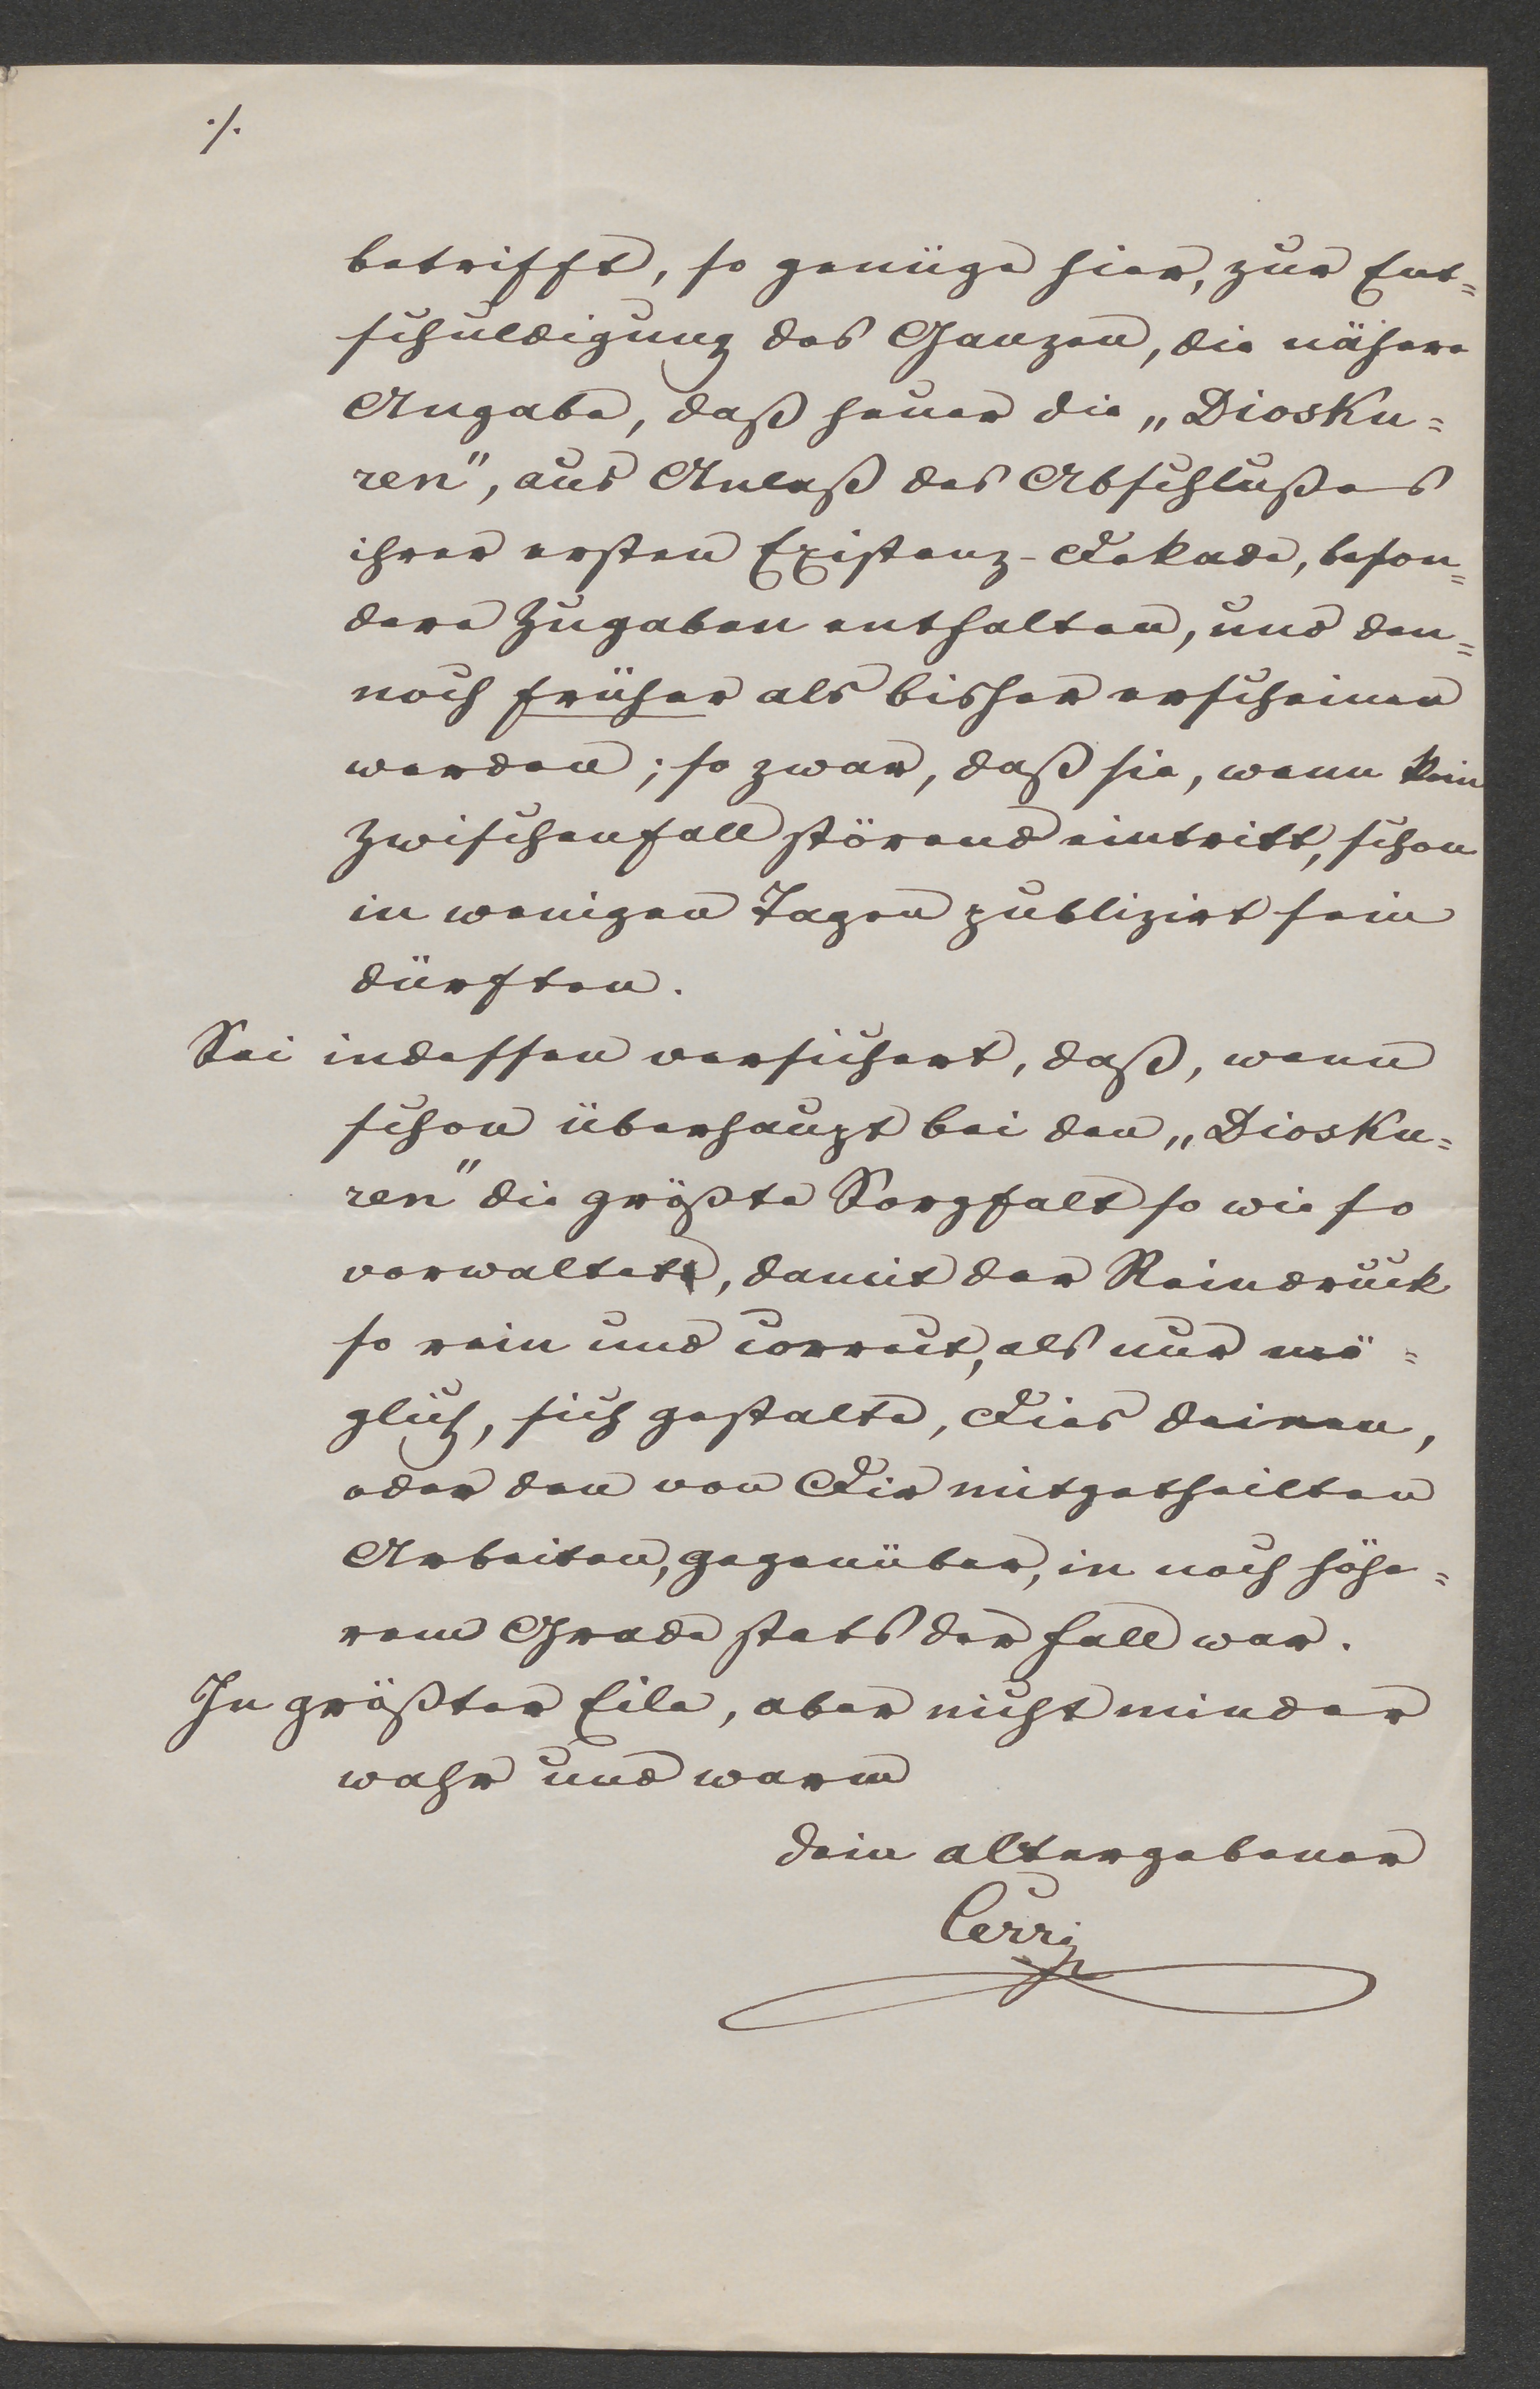 ./.
betrifft, so genüge hier, zur Ent=
schuldigung des Ganzen, die nähere
Angabe, daß heuer die „Diosku=
ren", aus Anlaß des Abschlußes
ihrer ersten Existenz-Dekade, beson=
dere Zugaben enthalten, und den=
noch früher als bisher erscheinen
werden; so zwar, daß sie, wenn kein
Zwischenfall störend eintritt, schon
in wenigen Tagen publizirt sein
dürften.
Sei indessen versichert, daß, wenn
schon überhaupt bei den „Diosku=
ren" die größte Sorgfalt so wie so
vorwaltet, damit der Reindruck
so rein und correct, als nur mö=
glich, sich gestalte, Dies deinen,
oder den von Dir mitgetheilten
Arbeiten, gegenüber, in noch höhe=
rem Grade stets der Fall war.
In größter Eile, aber nicht minder
wahr und warm
dein altergebener
Cerri